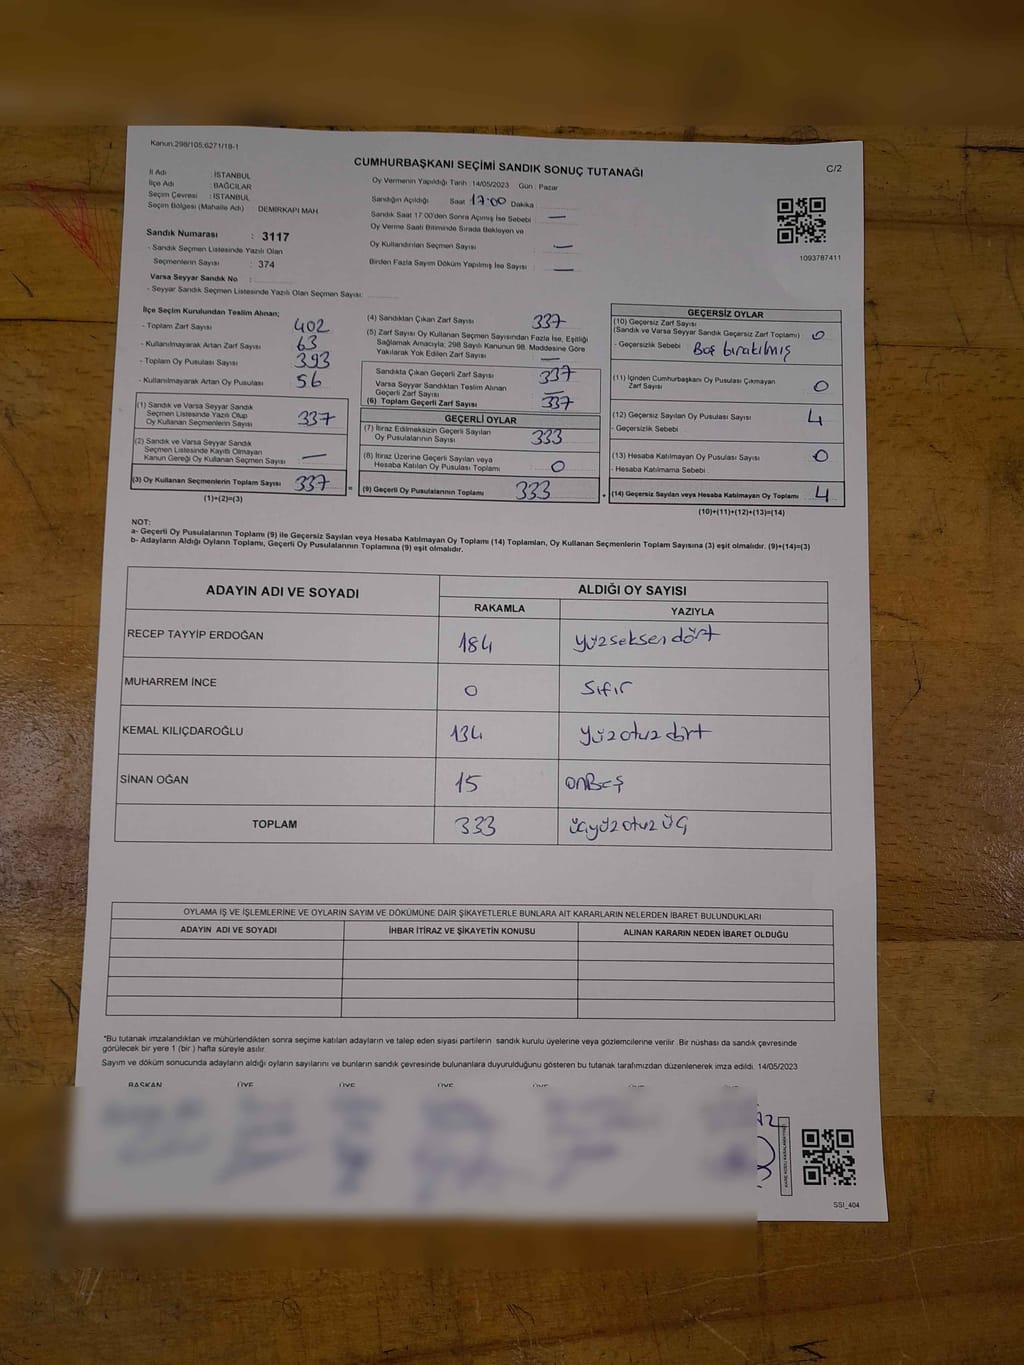 Kanun.298/105;6271/18-1
CUMHURBAŞKANI SEÇİMİ SANDIK SONUÇ TUTANAĞI
C/2
İl Adı : İSTANBUL
İlçe Adı : BAĞCILAR
Seçim Çevresi : İSTANBUL
Seçim Bölgesi (Mahalle Adı) DEMİRKAPI MAH.
Sandık Numarası : 3117
- Sandık Seçmen Listesinde Yazılı Olan
Seçmenlerin Sayısı : 374
Varsa Seyyar Sandık No :
- Seyyar Sandık Seçmen Listesinde Yazılı Olan Seçmen Sayısı:
Oy Vermenin Yapıldığı Tarih :14/05/2023 Gün : Pazar
Sandığın Açıldığı Saat 17:00 Dakika
Sandık Saat 17.00'den Sonra Açılmış İse Sebebi : —
Oy Verme Saati Bitiminde Sırada Bekleyen ve
Oy Kullandırılan Seçmen Sayısı : —
Birden Fazla Sayım Döküm Yapılmış İse Sayısı : —
1093787411
İlçe Seçim Kurulundan Teslim Alınan;
- Toplam Zarf Sayısı 402
- Kullanılmayarak Artan Zarf Sayısı 63
- Toplam Oy Pusulası Sayısı 393
- Kullanılmayarak Artan Oy Pusulası 56
(1) Sandık ve Varsa Seyyar Sandık
Seçmen Listesinde Yazılı Olup
Oy Kullanan Seçmenlerin Sayısı 337
(2) Sandık ve Varsa Seyyar Sandık
Seçmen Listesinde Kayıtlı Olmayan
Kanun Gereği Oy Kullanan Seçmen Sayısı —
(3) Oy Kullanan Seçmenlerin Toplam Sayısı 337
(1)+(2)=(3)
=
(4) Sandıktan Çıkan Zarf Sayısı 337
(5) Zarf Sayısı Oy Kullanan Seçmen Sayısından Fazla İse, Eşitliği
Sağlamak Amacıyla; 298 Sayılı Kanunun 98. Maddesine Göre
Yakılarak Yok Edilen Zarf Sayısı —
Sandıkta Çıkan Geçerli Zarf Sayısı 337
Varsa Seyyar Sandıktan Teslim Alınan
Geçerli Zarf Sayısı —
(6) Toplam Geçerli Zarf Sayısı 337
GEÇERLİ OYLAR
(7) İtiraz Edilmeksizin Geçerli Sayılan
Oy Pusulalarının Sayısı 333
(8) İtiraz Üzerine Geçerli Sayılan veya
Hesaba Katılan Oy Pusulası Toplamı 0
(9) Geçerli Oy Pusulalarının Toplamı 333
+
GEÇERSİZ OYLAR
(10) Geçersiz Zarf Sayısı
(Sandık ve Varsa Seyyar Sandık Geçersiz Zarf Toplamı) 0
- Geçersizlik Sebebi Boş bırakılmış
(11) İçinden Cumhurbaşkanı Oy Pusulası Çıkmayan
Zarf Sayısı 0
(12) Geçersiz Sayılan Oy Pusulası Sayısı 4
- Geçersizlik Sebebi
(13) Hesaba Katılmayan Oy Pusulası Sayısı 0
- Hesaba Katılmama Sebebi
(14) Geçersiz Sayılan veya Hesaba Katılmayan Oy Toplamı 4
(10)+(11)+(12)+(13)=(14)
NOT:
a- Geçerli Oy Pusulalarının Toplamı (9) ile Geçersiz Sayılan veya Hesaba Katılmayan Oy Toplamı (14) Toplamları, Oy Kullanan Seçmenlerin Toplam Sayısına (3) eşit olmalıdır. (9)+(14)=(3)
b- Adayların Aldığı Oyların Toplamı, Geçerli Oy Pusulalarının Toplamına (9) eşit olmalıdır.
ADAYIN ADI VE SOYADI
ALDIĞI OY SAYISI
RAKAMLA YAZIYLA
RECEP TAYYİP ERDOĞAN 184 yüzseksen dört
MUHARREM İNCE 0 Sıfır
KEMAL KILIÇDAROĞLU 134 yüzotuz dört
SİNAN OĞAN 15 onBeş
TOPLAM 333 üçyüzotuz üç
OYLAMA İŞ VE İŞLEMLERİNE VE OYLARIN SAYIM VE DÖKÜMÜNE DAİR ŞİKAYETLERLE BUNLARA AİT KARARLARIN NELERDEN İBARET BULUNDUKLARI
ADAYIN ADI VE SOYADI İHBAR İTİRAZ VE ŞİKAYETİN KONUSU ALINAN KARARIN NEDEN İBARET OLDUĞU
*Bu tutanak imzalandıktan ve mühürlendikten sonra seçime katılan adayların ve talep eden siyasi partilerin sandık kurulu üyelerine veya gözlemcilerine verilir. Bir nüshası da sandık çevresinde
görülecek bir yere 1 (bir ) hafta süreyle asılır.
Sayım ve döküm sonucunda adayların aldığı oyların sayılarını ve bunların sandık çevresinde bulunanlara duyurulduğunu gösteren bu tutanak tarafımızdan düzenlenerek imza edildi. 14/05/2023
BAŞKAN ÜYE ÜYE ÜYE ÜYE
SSI_404